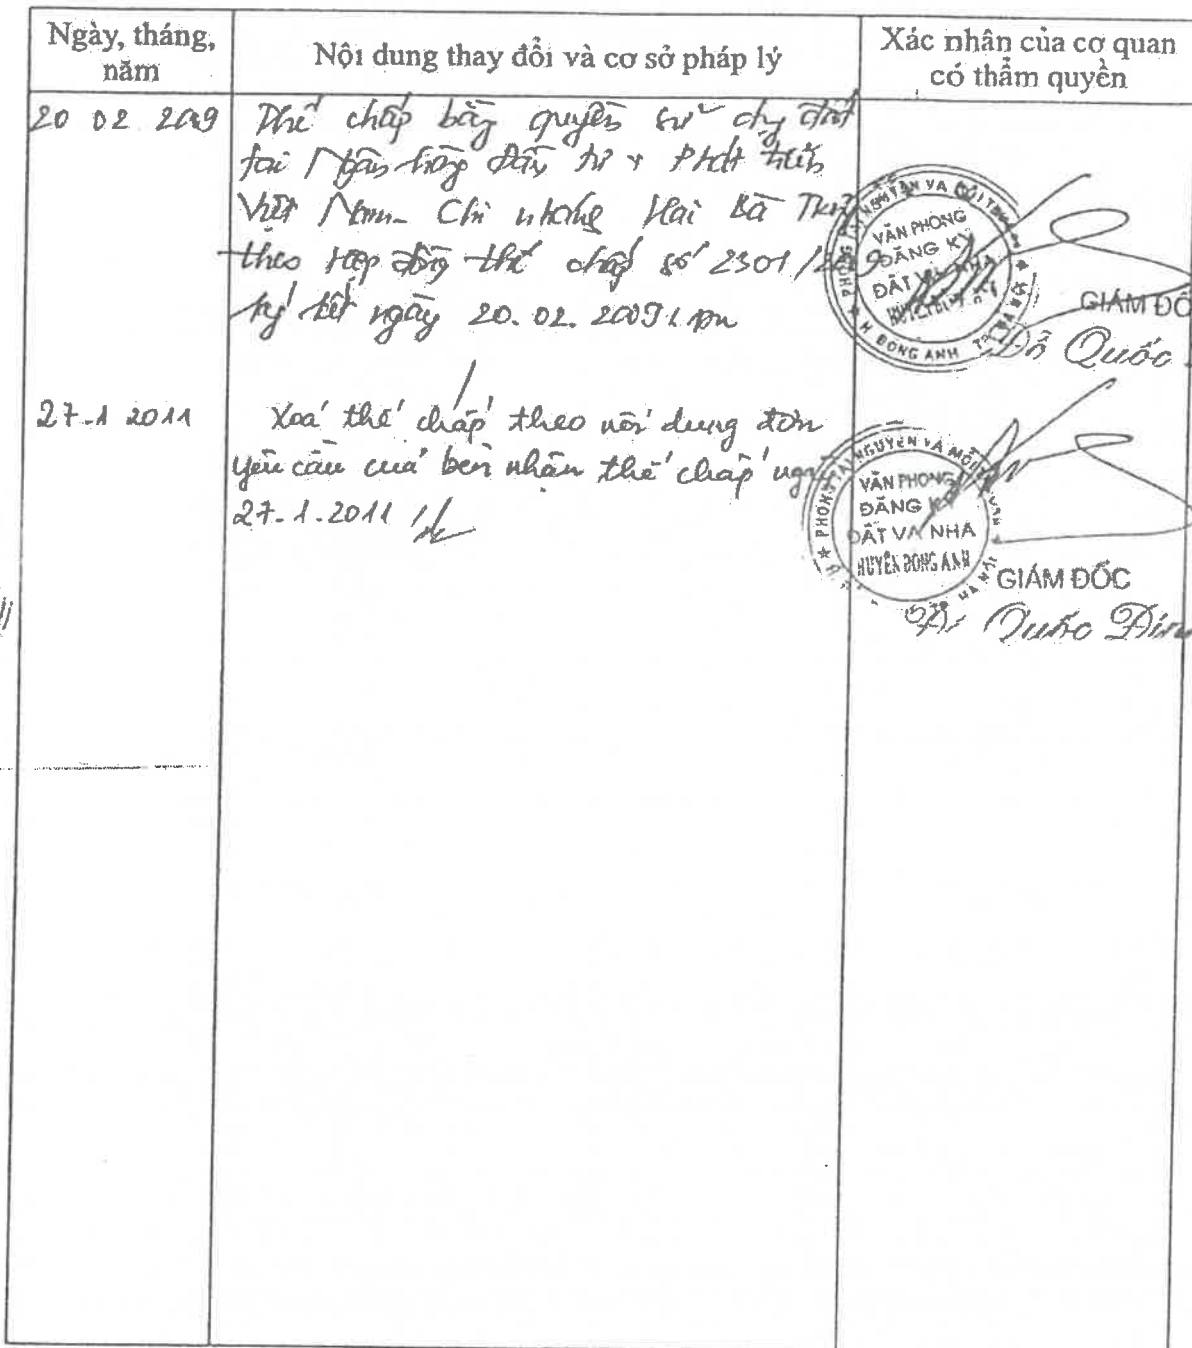 Ngày, tháng,
năm
Nội dung thay đổi và cơ sở pháp lý
Xác nhận của cơ quan
có thẩm quyền
20 02 2009
Thế chấp bằng quyền sử dụng đất
tại Ngân hàng Đầu tư & Phát triển
Việt Nam - Chi nhánh Hai Bà Trưng
theo Hợp đồng thế chấp số 2301/2009
ký kết ngày 20.02.2009
VĂN PHÒNG
ĐĂNG KÝ
ĐẤT VÀ NHÀ
ĐÔNG ANH
GIÁM ĐỐ
Đỗ Quốc
27-1 2011
Xoá thế chấp theo nội dung đơn
yêu cầu của bên nhận thế chấp ngày
27-1.2011
PHÒNG TÀI NGUYÊN VÀ MÔI
VĂN PHÒNG
ĐĂNG
ĐẤT VÀ NHÀ
HUYỆN ĐÔNG ANH
HÀ NỘI
GIÁM ĐỐC
Đỗ Quốc